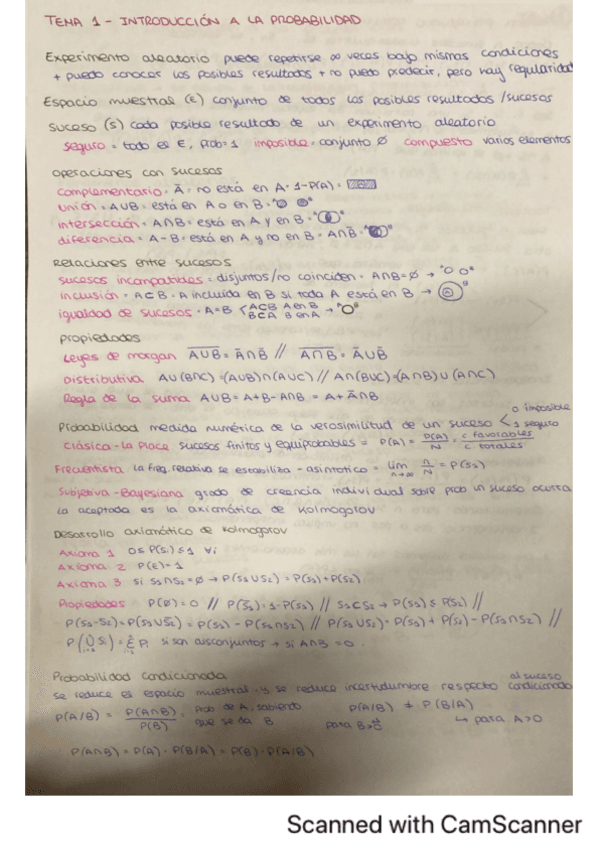 TEMA 1 - INTRODUCCIÓN A LA PROBABILIDAD
Experimento aleatorio puede repetirse ∞ veces bajo mismas condiciones
+ puedo conocer los posibles resultados + no puedo predecir, pero hay regularidad
Espacio muestral (E) conjunto de todos los posibles resultados/sucesos
suceso (S) cada posible resultado de un experimento aleatorio
seguro = todo es E, prob=1 imposible = conjunto Ø compuesto varios elementos
operaciones con sucesos
complementario = Ā = no está en A = 1-P(A) =
unión = A∪B = está en A o en B =
intersección = A∩B = está en A y en B =
diferencia = A-B = está en A y no en B = A∩B̄ =
Relaciones entre sucesos
sucesos incompatibles = disjuntos/no coinciden = A∩B=Ø →
inclusión = A⊂B = A incluida en B si toda A está en B →
igualdad de sucesos = A=B < A⊂B A en B
B⊂A B en A →
Propiedades
Leyes de morgan \overline{A∪B} = Ā∩B̄ // \overline{A∩B} = Ā∪B̄
Distributiva A∪(B∩C)=(A∪B)∩(A∪C) // A∩(B∪C)=(A∩B)∪(A∩C)
Regla de la suma A∪B = A+B-A∩B = A+Ā∩B
Probabilidad medida numérica de la verosimilitud de un suceso < 0 imposible
1 seguro
Clásica - La Place sucesos finitos y equiprobables = P(A) = = c favorables / c totales
Frecuentista La freq. relativa se estabiliza - asintotico = lim n→∞ n/N = P(S1)
Subjetiva - Bayesiana grado de creencia individual sobre prob un suceso ocurra
La aceptada es la axiomática de Kolmogorov
Desarrollo axiomático de Kolmogorov
Axioma 1 0≤P(Si)≤1 ∀i
Axioma 2 P(E)=1
Axioma 3 si S1∩S2=Ø → P(S1∪S2)=P(S1)+P(S2)
Propiedades P(Ø)=0 // P(S̄1)=1-P(S1) // S1⊂S2 → P(S1)≤P(S2) //
P(S1-S2)=P(S1∩S̄2)=P(S1)-P(S1∩S2) // P(S1∪S2)=P(S1)+P(S2)-P(S1∩S2) //
si son disconjuntos → si A∩B=0.
Probabilidad condicionada
se reduce el espacio muestral y se reduce incertidumbre respecto al suceso condicionado
P(A/B) = P(A∩B)/P(B) prob de A, sabiendo que se da B P(A/B) ≠ P(B/A)
para B>0 ↳ para A>0
P(A∩B) = P(A)·P(B/A) = P(B)·P(A/B)
Scanned with CamScanner